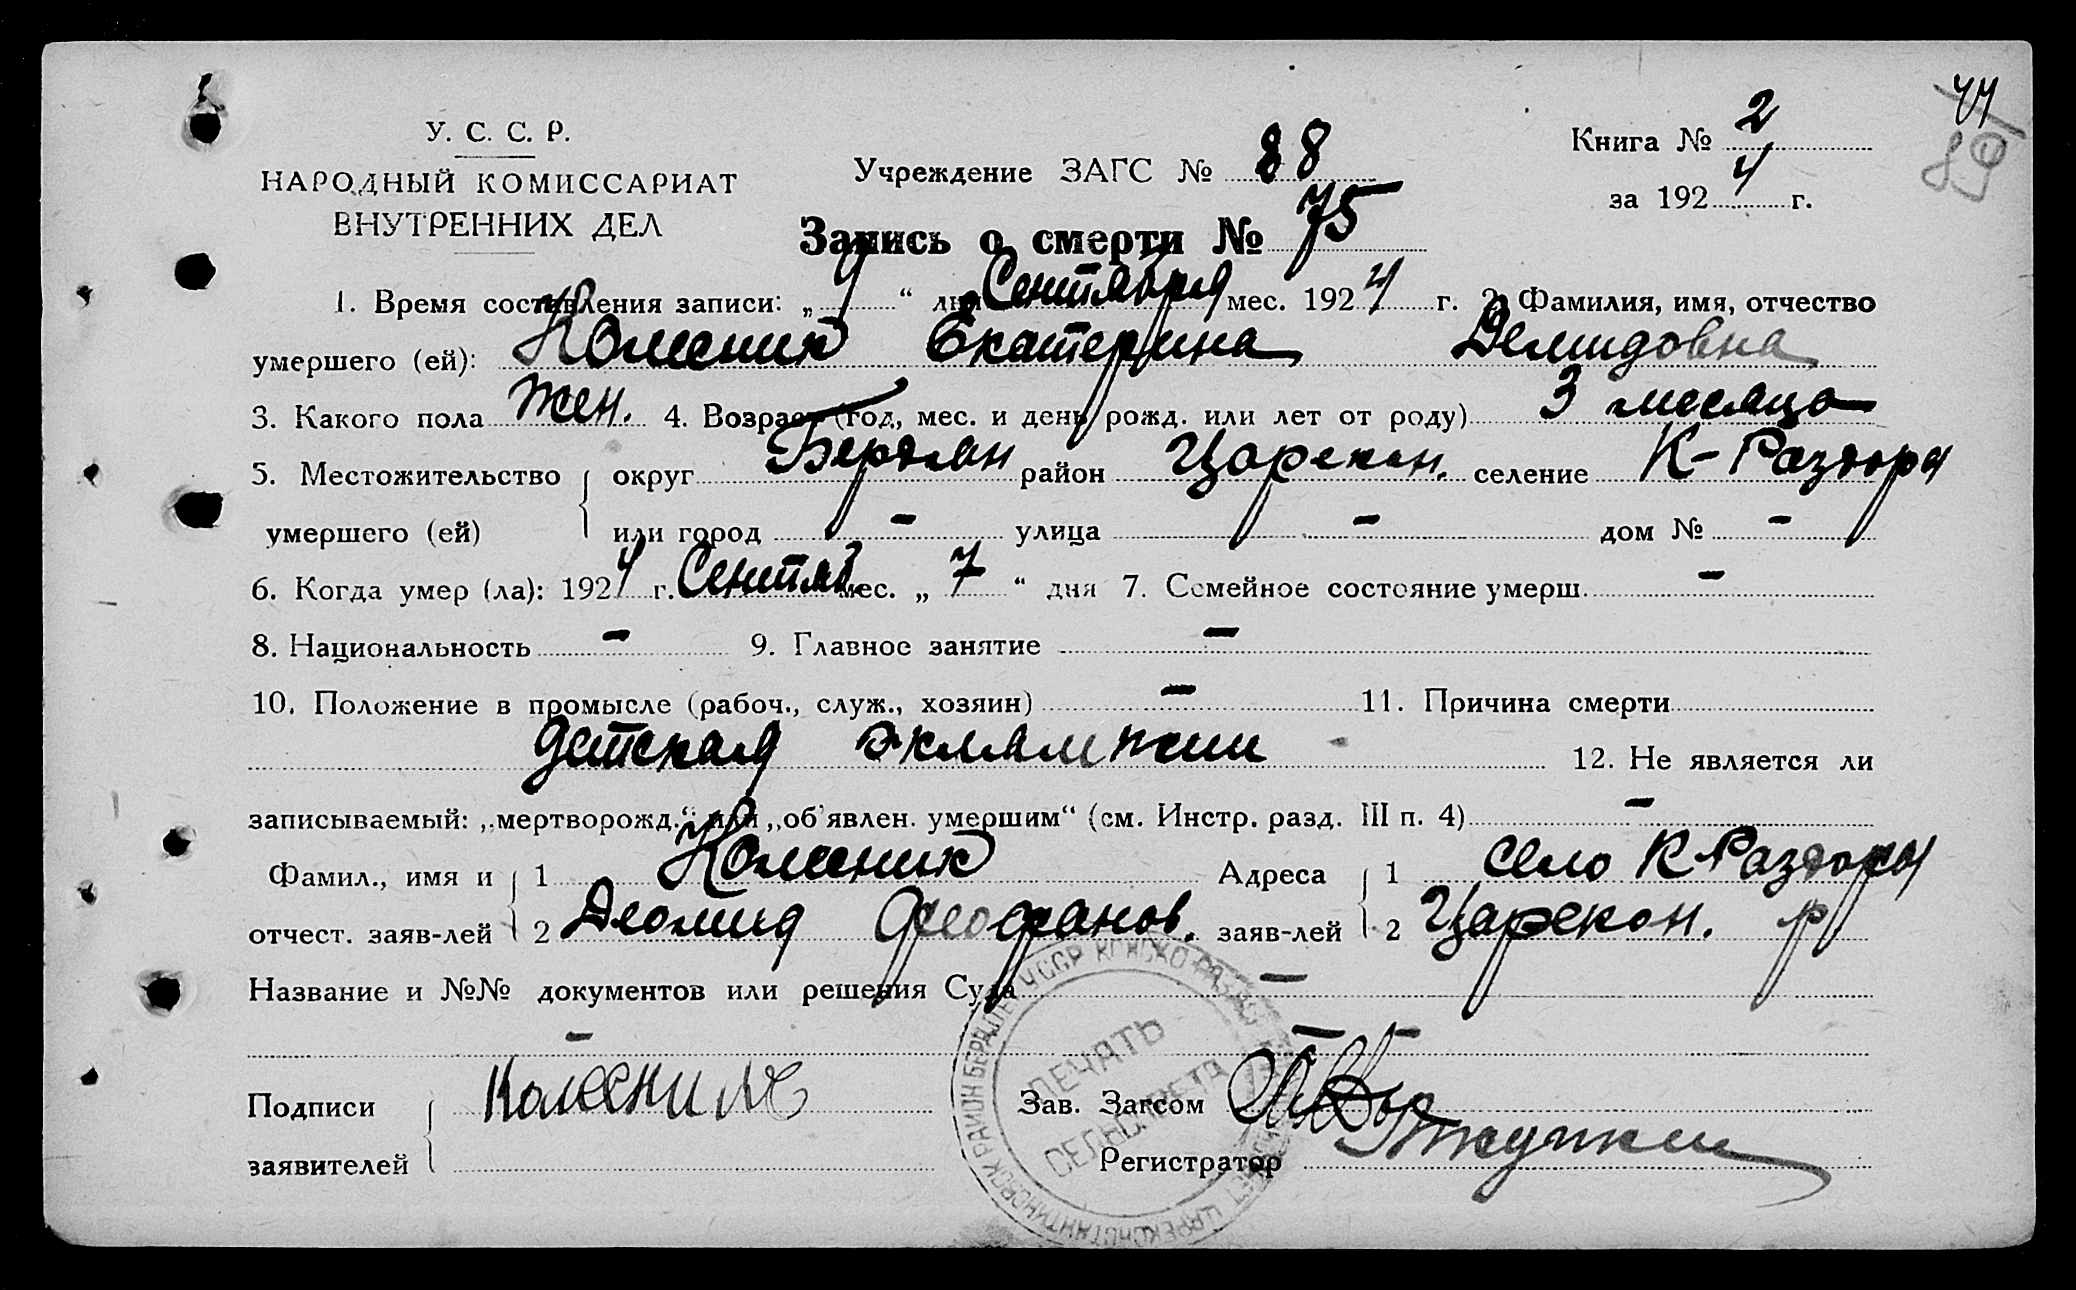 У. С. С. Р.
НАРОДНЫЙ КОМИССАРИАТ
ВНУТРЕННИХ ДЕЛ
Учреждение ЗАГС № 88
Книга № 2
за 1924 г.
44
89
Запись о смерти № 75
1. Время составления записи: „9“ дня Сентября мес. 1924 г. 2. Фамилия, имя, отчество
умершего (ей): Колесник Екатерина Демидовна
3. Какого пола жен. 4. Возраст (год, мес. и день рожд. или лет от роду) 3 месяца
5. Местожительство округ Бердян район Царекон. селение К-Раздоры
умершего (ей) или город - улица - дом № -
6. Когда умер (ла): 1924 г. Сентяб. мес. „7“ дня 7. Семейное состояние умерш. -
8. Национальность - 9. Главное занятие -
10. Положение в промысле (рабоч., служ., хозяин) - 11. Причина смерти
детская эклампсии 12. Не является ли
записываемый: „мертворожд.“ или „об'явлен. умершим“ (см. Инстр. разд. III п. 4) -
Фамил., имя и 1 Колесник Адреса 1 село К Раздоры
отчест. заяв-лей 2 Деомид Феофанов. заяв-лей 2 Царекон. р
Название и №№ документов или решения Суда -
-
Подписи Колесник Зав. Загсом
заявителей Регистратор
ПЕЧАТЬ
СЕЛЬСОВЕТА